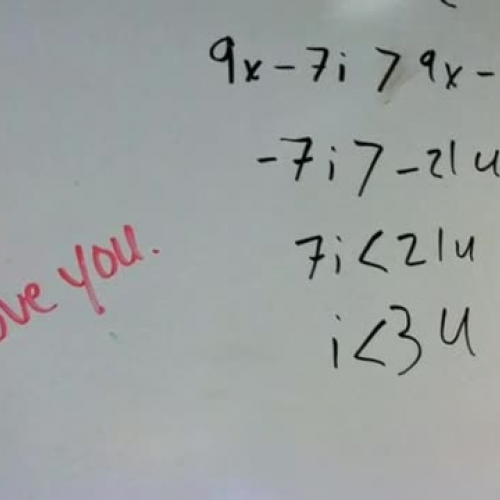 9x - 7i > 9x -
-7i > -21u
7i < 21u
i < 3u
you.